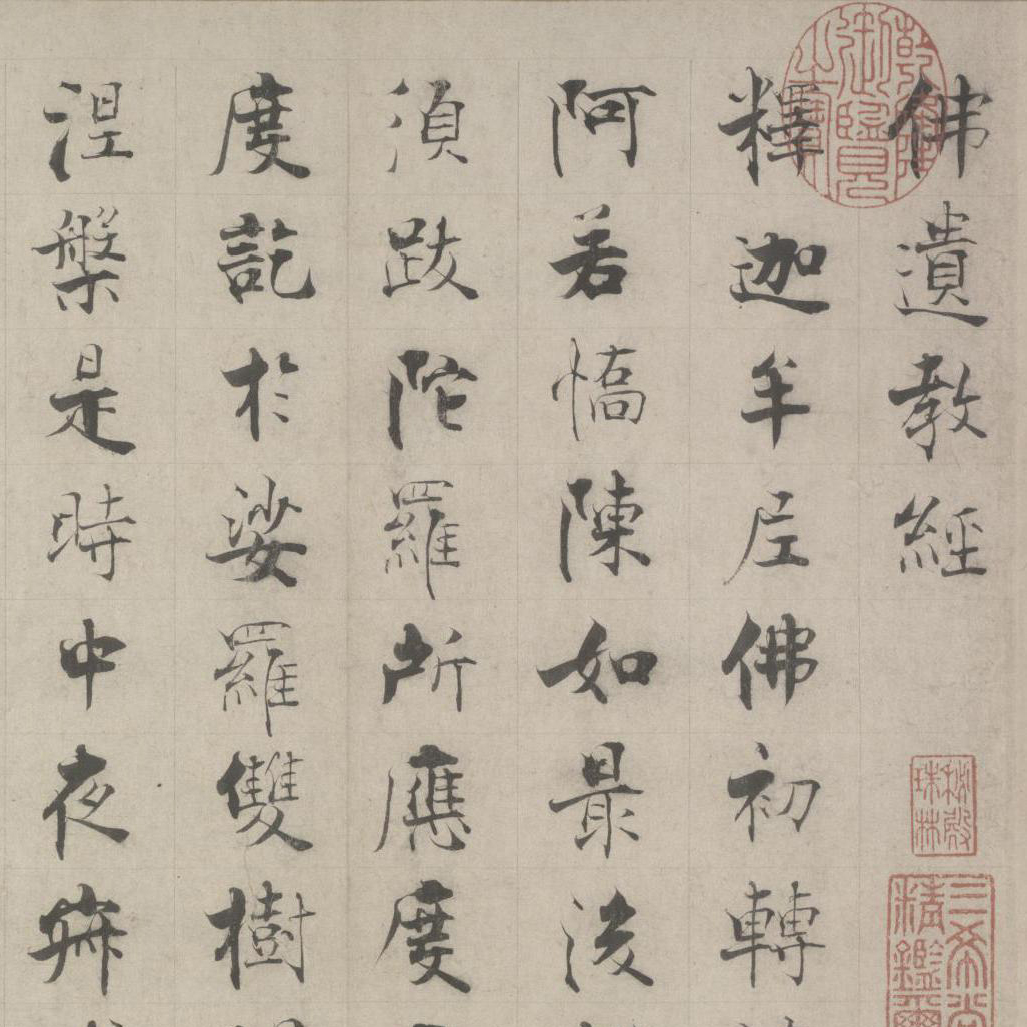 佛遺教經
釋迦牟尼佛初轉
阿若憍陳如最後
須跋陀羅所應度
度訖於娑羅雙樹
涅槃是時中夜寂
乾隆御覽之寶
秘殿珠林
三希堂精鑑璽